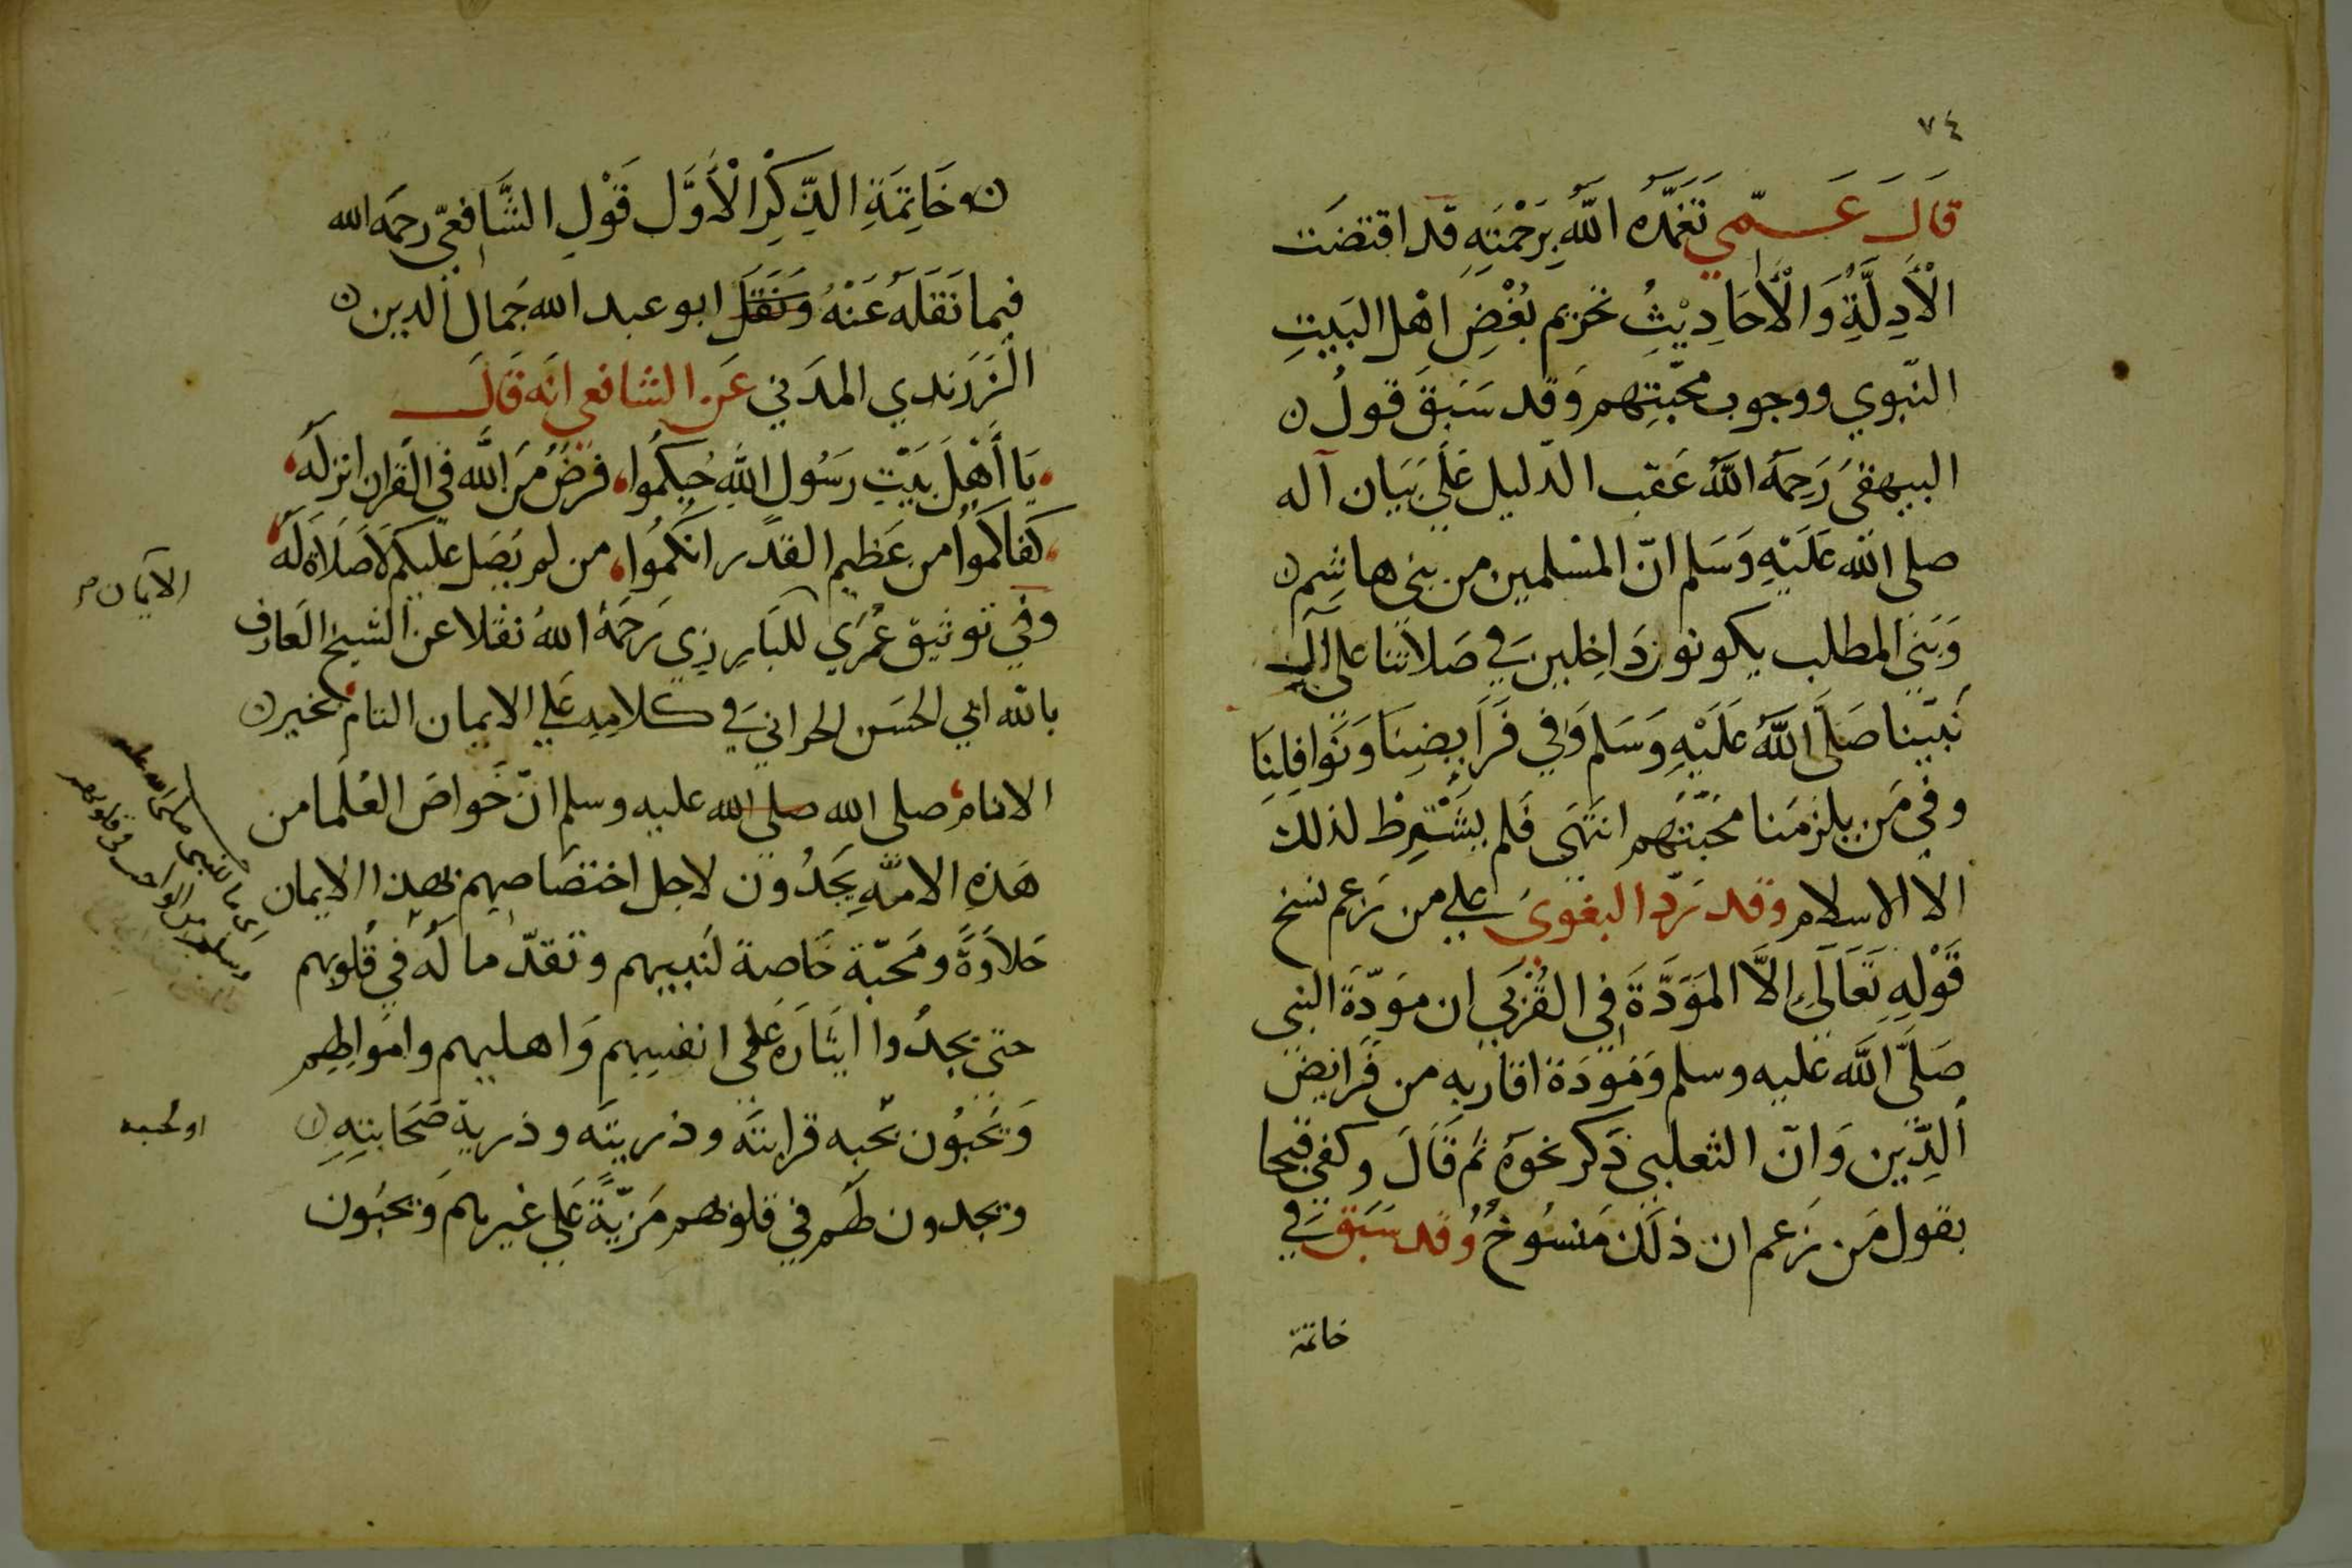 ٧٤
قَالَ عَمّي تَغَمَّدَهُ اللّه بِرَحْمَتِهِ قد اقتضَت
الْأَدِلَّةِ وَالْأَحَادِيْثُ تحريم بُغْضِ اهْل البَيتِ
النّبوي ووجوب محَبّتِهم وَقد سَبَقَ قولُ
البيهقيُ رَحِمَهُ اللّهُ عَقب الدّليل عَلَي بَيَان آله
صلى الله عَلَيْهِ وَسَلم انّ المسْلمين من بني هاشِم
وَبَني المطلب يكونون دَاخِلين في صَلاتنا على آل
نَبيّنا صَلَّى اللَّهُ عَلَيْهِ وَسَلم وَفي فَرَايضِنَا وَنَوَافِلِنَا
وفي مَن يلزمَنا محَبّتَهُم انتَهَى فَلم يشْتَرِطْ لذلك
الا الاسلام وقد رَدّ البغوىَ علي من زعم نسخ
قَوْلِهِ تَعَالَى اِلَّا المَوَدَّةَ فِي القُرْبَي ان مَوَدّةَ النبى
صَلَّى اللَّه عَليه وسلم وَمَودَة اقاربه من فَرَايض
الدِّين وَانّ الثعلبي ذَكر نحوَهُ ثم قَالَ وكفي قبحا
بقول مَن زَعم ان ذلَك مَنسُوخُ وُقد سَبَق في
خاتمة
خَاتِمَةِ الذِّكِرِ الْأَوَّل قَوْلِ الشَّافعيّ رحمَه الله
فيما نَقَلَهُ عَنْهُ وَنَقَل ابو عبد الله جَمال الدين
الزَرَندي المدَني عَن الشافعي انَه قَالَ
يَا أَهْلَ بَيْتِ رَسُول اللهِ حُبكمُوا، فرضُ مَن اللَّه في القران انزلهُ
كفاكمُوا من عَظيم القدَر انكمُوا، من لم يصَل عَليكم لَا صَلَاة لهُ
وفي توثيق عُرَي للبَارِزي رَحمَهُ اللهُ نقلا عن الشيخ العَارف
بالله ابي الحسَن الحراني في كلامِه عَلي الايمان التام بخير
الانام صلى الله صلى الله عليه وسلم انّ خَواصَ العُلمَا من
هَذِهِ الامّهِ يَجدُون لاجل اختصَاصِهم بهذا الايمان
حَلاوَةً ومَحَبّة خَاصة لنبيهم وتقدّما لهُ في قُلوبهم
حتي يجدُوا ايثَارَهُ عَلي انفسِهِم وَاهليهم وامَوالِهِم
وَيحبوُن بحُبه قرابتَهَ وذريتَه وذريةَ صَحَابتِهِ
ويجدون لهَم في قلوبهم مَزيّةً عَلي غيرهم وَيحبُون
الايمَان م
او لحبه